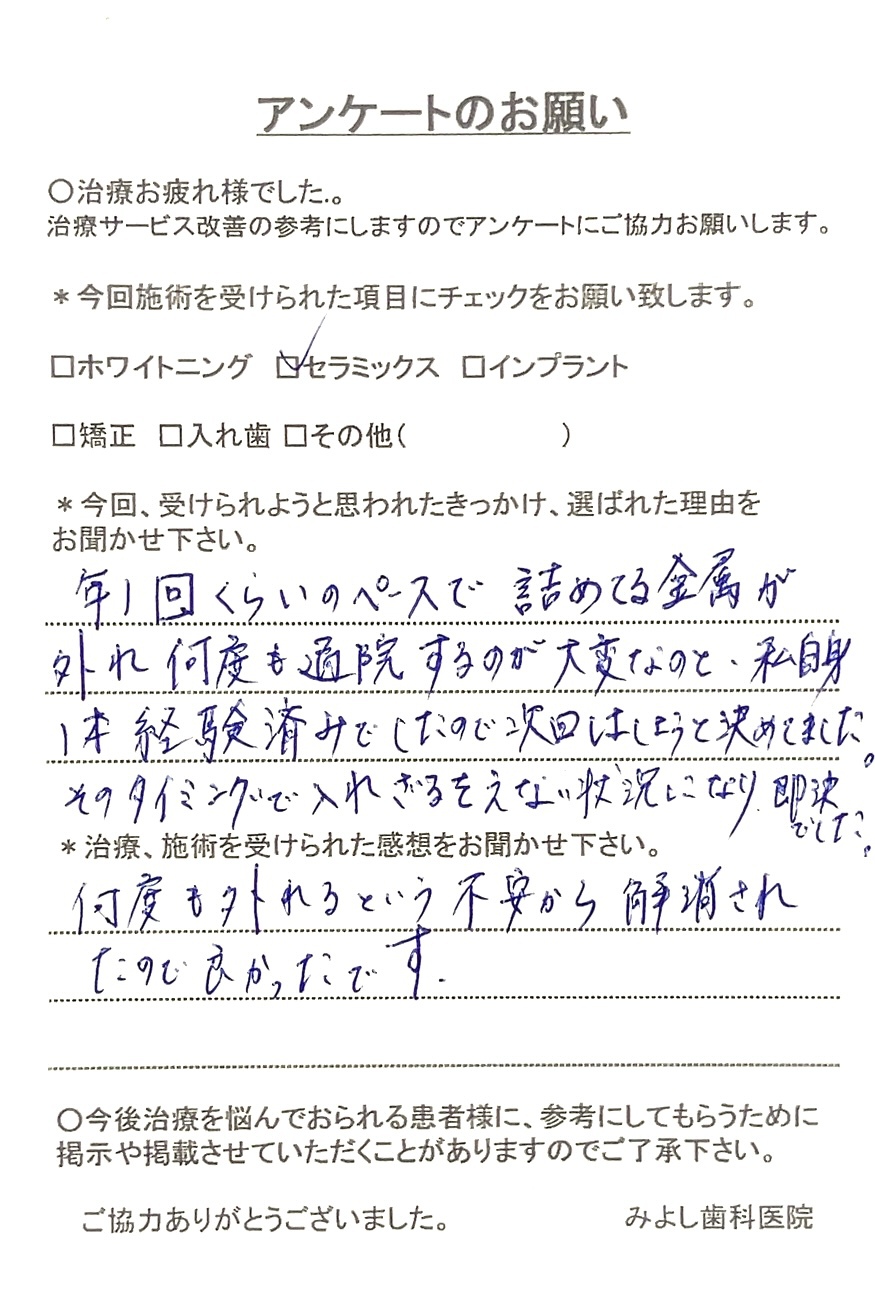 アンケートのお願い
○治療お疲れ様でした.。
治療サービス改善の参考にしますのでアンケートにご協力お願いします。
＊今回施術を受けられた項目にチェックをお願い致します。
□ホワイトニング ☑セラミックス □インプラント
□矯正 □入れ歯 □その他( )
＊今回、受けられようと思われたきっかけ、選ばれた理由を
お聞かせ下さい。
年1回くらいのペースで 詰めてる金属が
外れ 何度も通院するのが大変なのと、私自身
1本 経験済みでしたので次回はしようと決めてました。
そのタイミングで入れざるをえない状況になり、即決
でした。
＊治療、施術を受けられた感想をお聞かせ下さい。
何度も外れるという不安から 解消され
たので良かったです.
○今後治療を悩んでおられる患者様に、参考にしてもらうために
掲示や掲載させていただくことがありますのでご了承下さい。
ご協力ありがとうございました。 みよし歯科医院